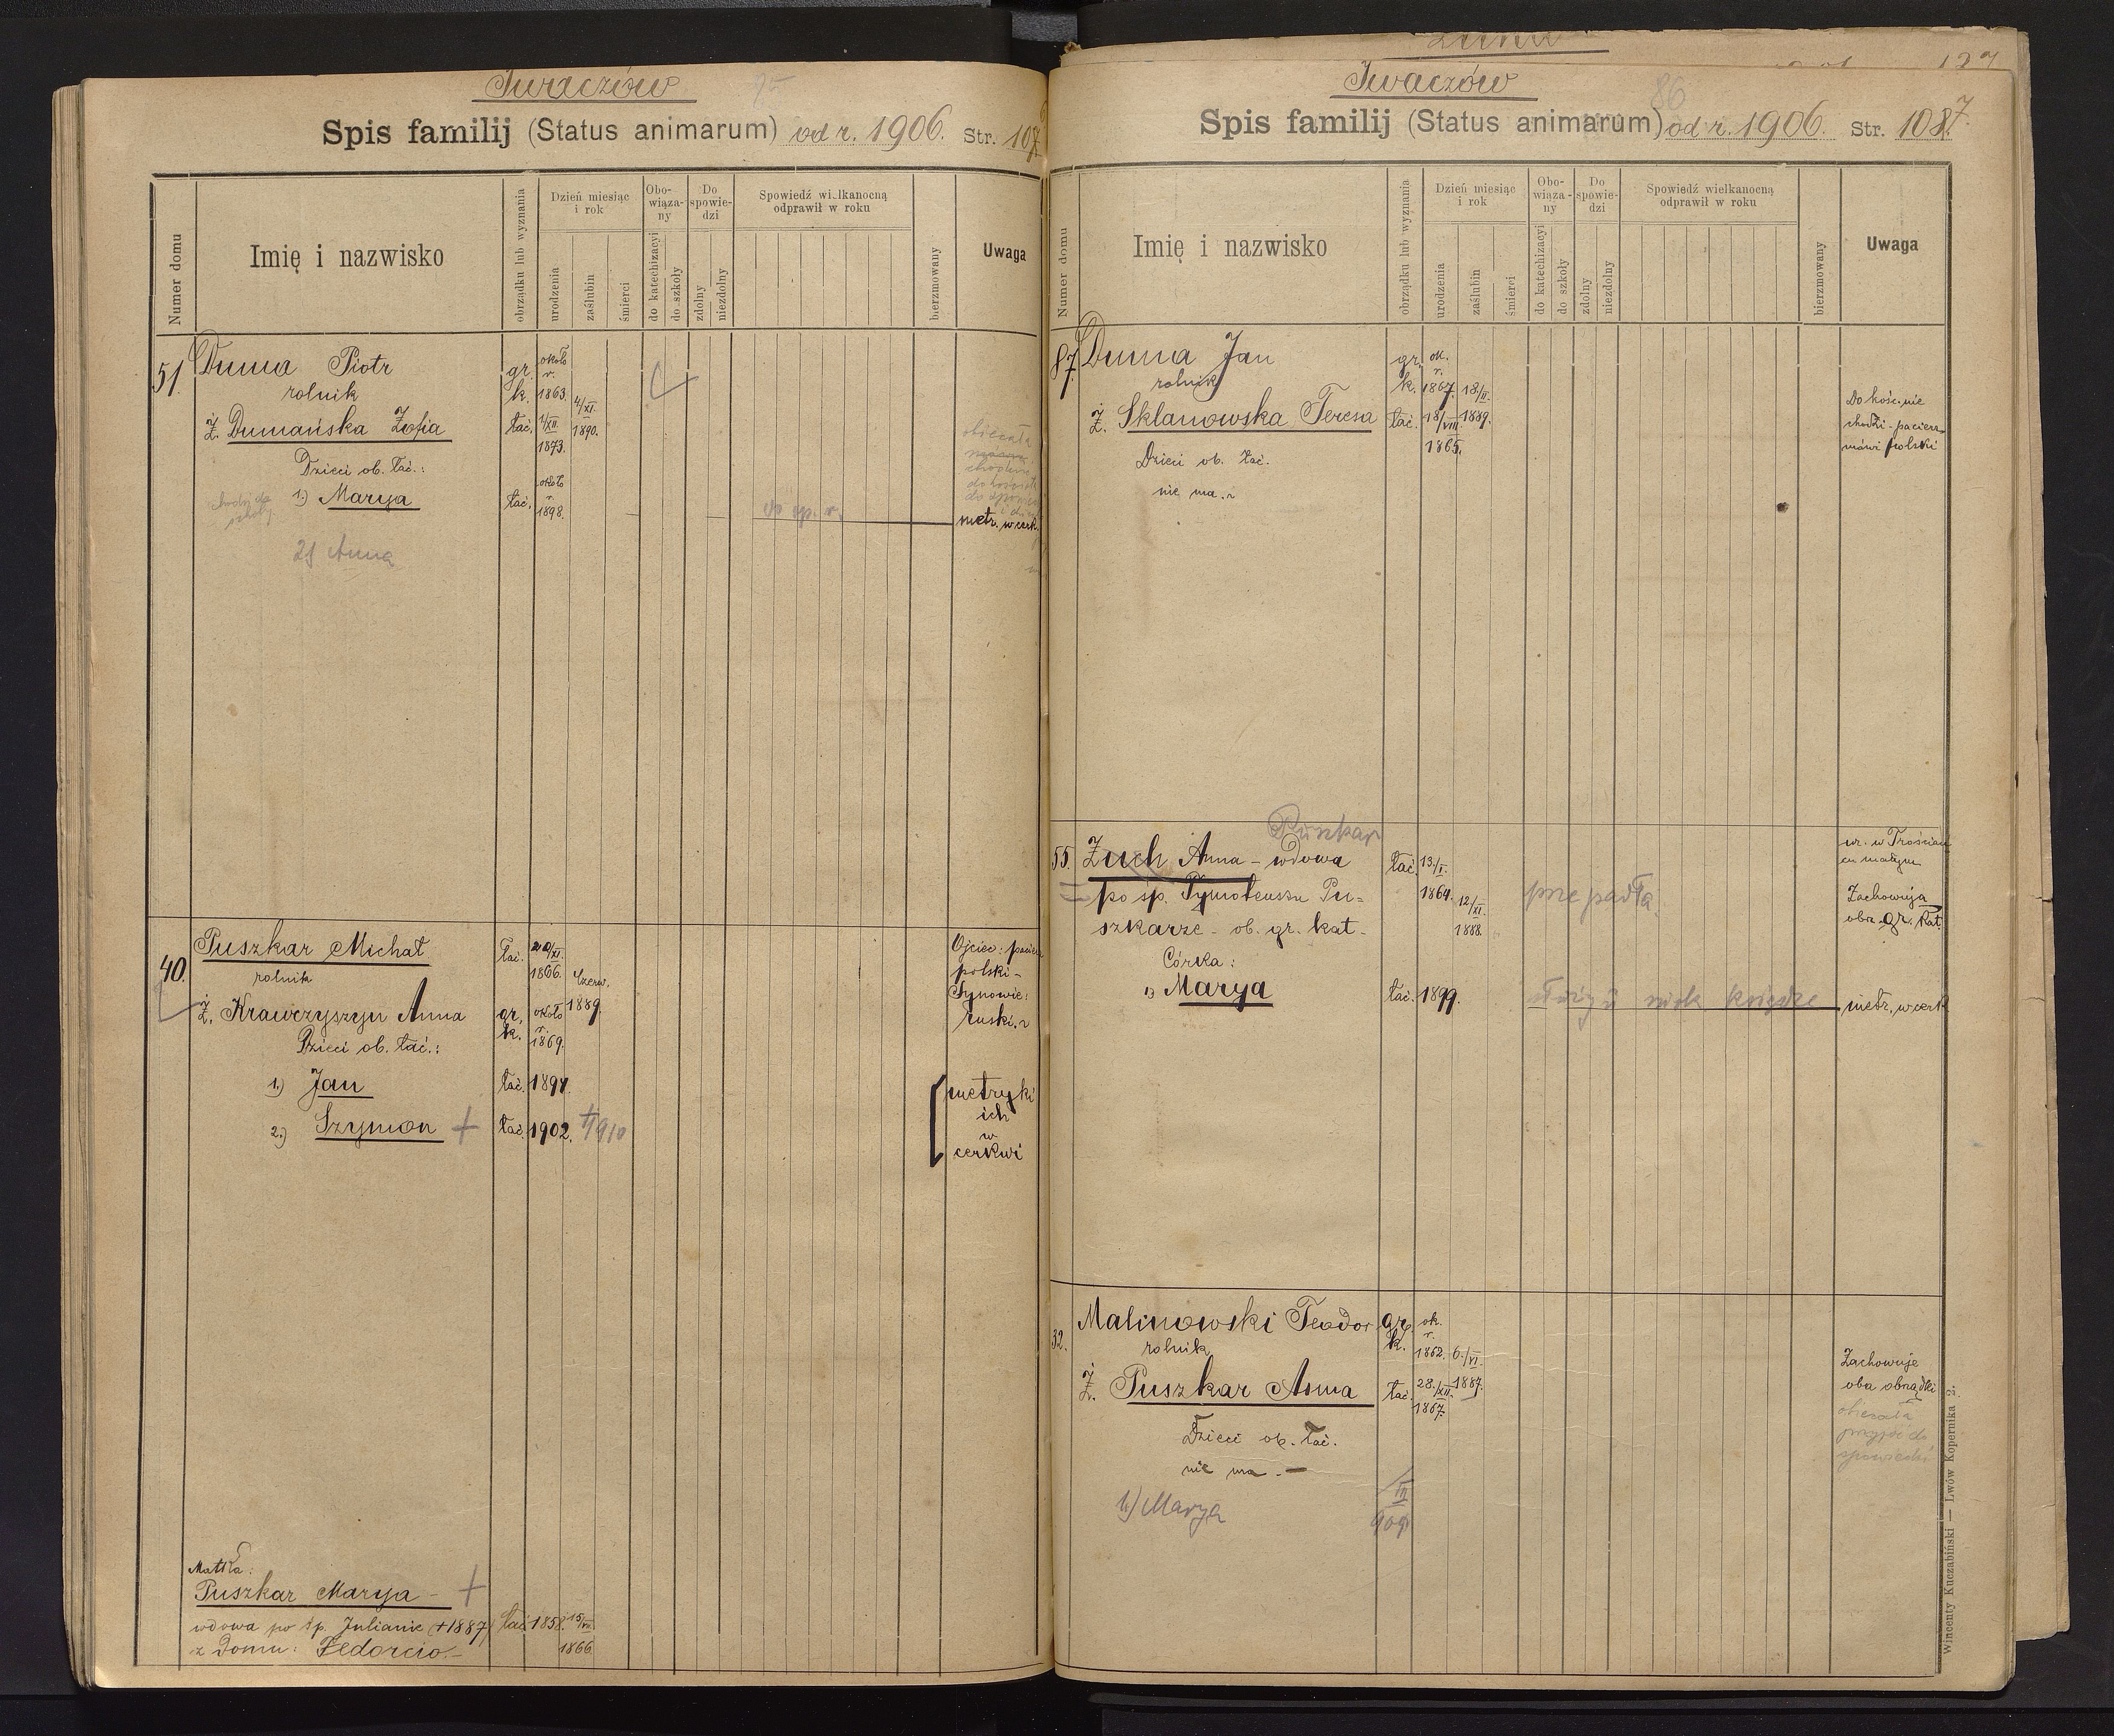 Iwaczów
Spis familij (Status animarum) od r. 1906. Str. 107
Numer domu
Imię i nazwisko
obrządku lub wyznania
Dzień miesiąc i rok
urodzenia
zaślubin
śmierci
Obo-wiąza-ny
do katechizacyi
do szkoły
Do spowie-dzi
zdolny
niezdolny
Spowiedź wielkanocną odprawił w roku
bierzmowany
Uwaga
51
Duma Piotr
gr. k.
około r. 1863.
rolnik
4/XI. 1890.
Ż. Dumańska Zofia
łać.
1/XII. 1873.
Dzieci ob. łać.:
1.) Marya
łać.
około r. 1898.
do sp. r.
metr. w cerk.
2) Anna
40.
Puszkar Michał
łać.
20/XI. 1866.
Czerw. 1889.
Ojciec: pacierz
polski -
Synowie:
ruski.
rolnik
Ż. Krawczyszyn Anna
gr. k.
około r. 1869.
Dzieci ob. łać.:
1.) Jan
łać. 1894.
2.) Szymon +
łać. 1902. +1910
metryki
ich
w
cerkwi
Matka:
Puszkar Marya - +
wdowa po śp. Julianie (+1887)
łać. 1858.
15/VII. 1866
z domu: Fedorcio. -
Iwaczów
86
Spis familij (Status animarum) od r. 1906. Str. 108. 7.
Numer domu
Imię i nazwisko
obrządku lub wyznania
Dzień miesiąc i rok
urodzenia
zaślubin
śmierci
Obo-wiąza-ny
do katechizacyi
do szkoły
Do spowie-dzi
zdolny
niezdolny
Spowiedź wielkanocną odprawił w roku
bierzmowany
Uwaga
87.
Duma Jan
gr. k.
ok. r. 1867.
18/II. 1889.
rolnik
Ż. Sklanowska Teresa
łać.
18/VIII. 1865.
Do kośc. nie
chodzi - pacierz
mówi polski
Dzieci ob. łać.
nie ma.
Puszkar
55.
Żuch Anna - wdowa
łać.
13./I. 1864.
12/XI. 1888.
ur. w Trościań
cu małym
po śp. Tymoteuszu Pu=
przepadła.
Zachowuja
oba gr. kat
szkarze - ob. gr. kat -
Córka:
1) Marya
łać. 1899.
metr. w cerk
32.
Malinowski Teodor
gr. k.
ok. r. 1862.
6./VI. 1887.
rolnik
Ż. Puszkar Anna
łać.
28./XII. 1867.
Zachowuje
oba obrządki
obiecała
przyjść do
spowiedzi
Dzieci ob. łać.
nie ma. -
1.) Marya
Wincenty Kuczabiński — Lwów Kopernika 2.